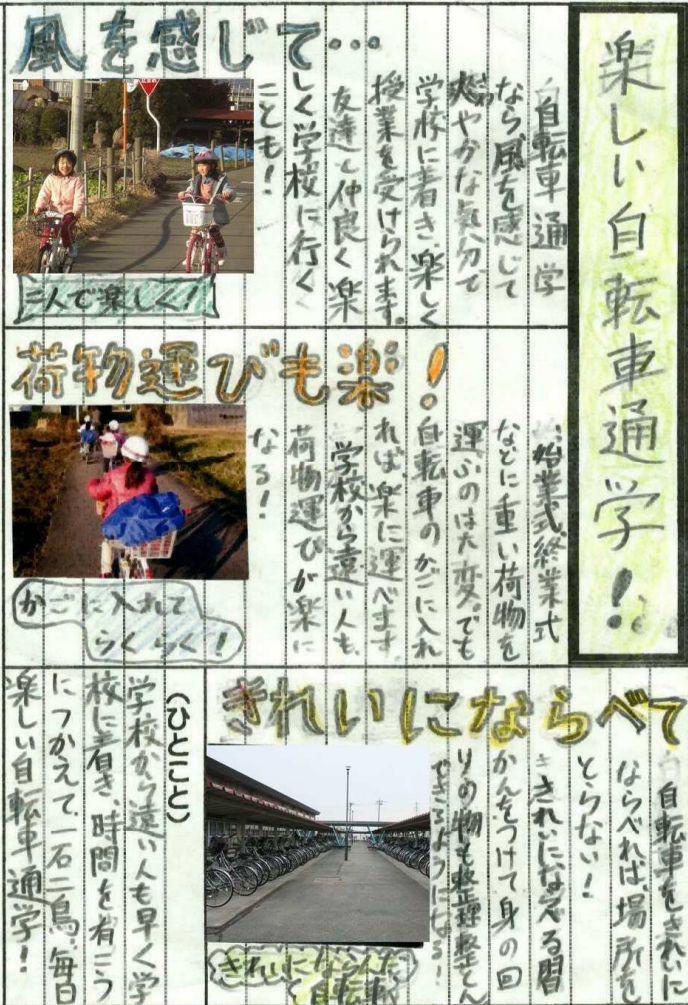 楽しい自転車通学！
風を感じて…
自転車通学
なら風を感じて
爽やかな気分で
学校に着き、楽しく
授業を受けられます。
友達と仲良く楽
しく学校に行く
ことも！
二人で楽しく！
荷物運びも楽！
始業式、終業式
などに重い荷物を
運ぶのは大変。でも
自転車のかごに入れ
れば楽に運べます。
学校から遠い人も、
荷物運びが楽に
なる！
かごに入れて
らくらく！
きれいにならべて
自転車をきれいに
ならべれば、場所を
とらない！
きれいにならべる習
かんをつけて身の回
りの物も整理整とん
できるようになる！
きれいにならんだ
自転車
（ひとこと）
学校から遠い人も早く学
校に着き、時間を有こう
につかえて、一石二鳥。毎日
楽しい自転車通学！